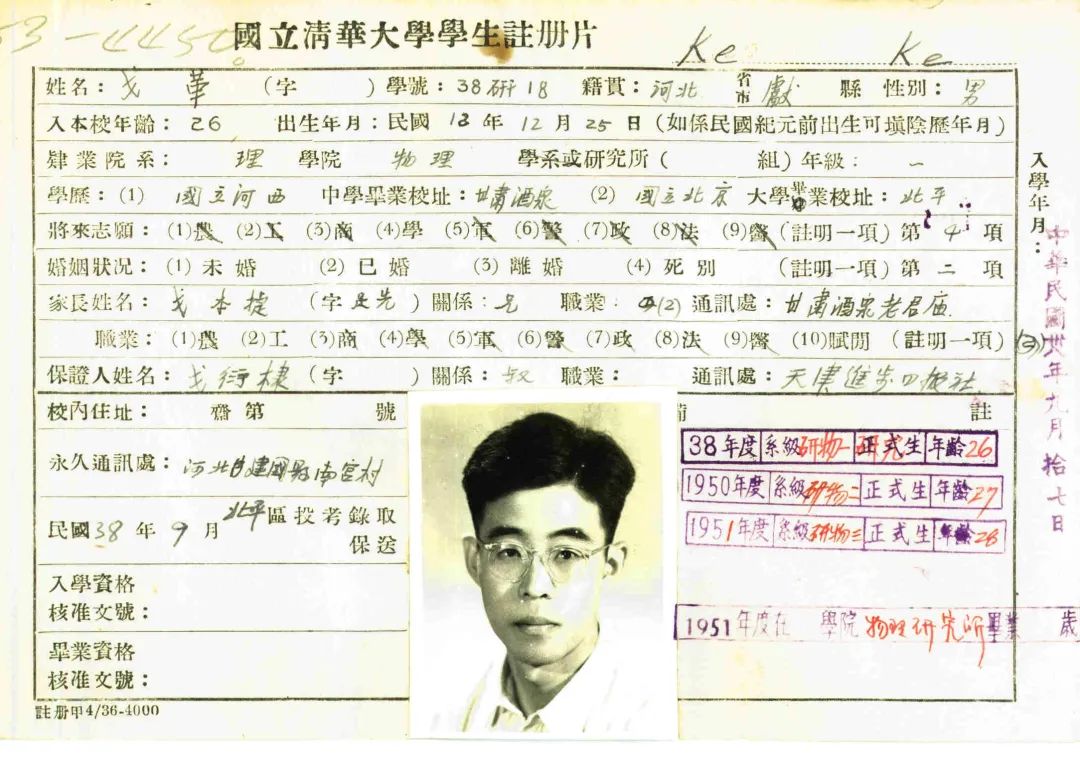 53-4450
國立清華大學學生註册片
Ke Ke
姓名：戈革 (字 ) 學號：38研18 籍貫：河北 省市 獻 縣 性別：男
入本校年齡：26 出生年月：民國13年12月25日 (如係民國紀元前出生可填陰歷年月)
肄業院系： 理 學院 物理 學系或研究所 ( 組) 年級：一
學歷：(1) 國立河西 中學畢業校址：甘肅酒泉 (2) 國立北京 大學畢業校址：北平
將來志願：(1)農 (2)工 (3)商 (4)學 (5)軍 (6)警 (7)政 (8)法 (9)醫 (註明一項) 第 4 項
婚姻狀況：(1) 未婚 (2) 已婚 (3) 離婚 (4) 死別 (註明一項) 第 二 項
家長姓名：戈本捷 (字 ) 關係：兄 職業： (2) 通訊處：甘肅酒泉老君庙
職業：(1)農 (2)工 (3)商 (4)學 (5)軍 (6)警 (7)政 (8)法 (9)醫 (10)賦閒 (註明一項) (2)
保證人姓名：戈衍棣 (字 ) 關係：叔 職業： 通訊處：天津進步日报社
入學年月：
中華民國卅八年九月拾七日
校內住址： 齋第 號
永久通訊處：河北省建國縣南宮村
民國38年9月北平區投考錄取
保送
入學資格
核准文號：
畢業資格
核准文號：
註册甲4/36-4000
備 註
38年度 系級研物一 研究 正式生 年齡26
1950年度 系級研物二 正式生 年齡27
1951年度 系級研物三 正式生 年齡28
1951年度在 學院 物理研究所 畢業 歲